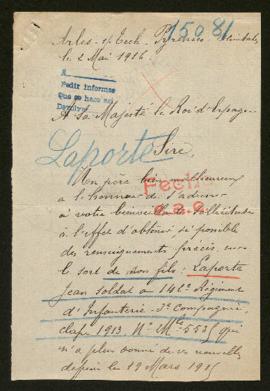 15081
Arles-s/-Tech. Pyrénées Orientales
le 2 Mai 1916
A
Pedir informes
que se hace
A Sa Majesté le Roi d'Espagne
Sire,
Laporte
Un père bien malheureux
a l'honneur de
à votre
à l'effet d'obtenir si possible
des renseignements précis, sur
le sort de son fils: Laporte
Jean soldat au 142e Régiment
d'Infanterie 3e Compagnie
classe 1913 No Mle 553 (qui
n'a plus donné de ses nouvelles
depuis le 19 Mars 1915
Fech